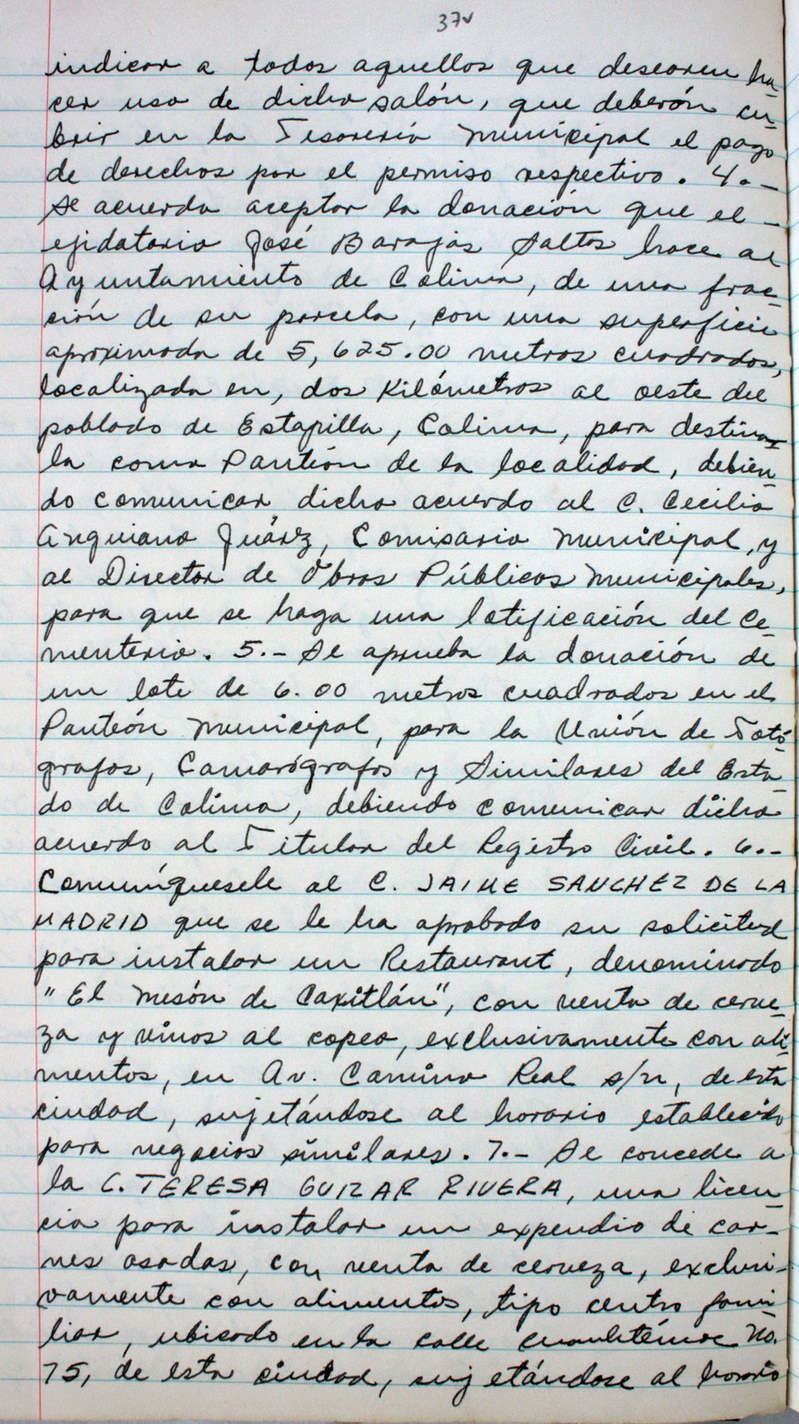 37v
indicar a todos aquellos que desearen ha-
cer uso de dicho salón, que deberán cu-
brir en la Tesorería Municipal el pago
de derechos por el permiso respectivo. 4.-
Se acuerda aceptar la donación que el
ejidatario José Barajas Saltos hace al
Ayuntamiento de Colima, de una frac-
ción de su parcela, con una superficie
aproximada de 5,625.00 metros cuadrados,
localizada en, dos Kilómetros al oeste del
poblado de Estapilla, Colima, para destinar
la como Panteón de la localidad, debien
do comunicar dicho acuerdo al C. Cecilio
Anguiano Juárez, Comisario Municipal, y
al Director de Obras Públicas Municipales,
para que se haga una lotificación del Ce-
menterio. 5.- Se aprueba la donación de
un lote de 6.00 metros cuadrados en el
Panteón Municipal, para la Unión de Fotó-
grafos, Camarógrafos y Similares del Esta
do de Colima, debiendo comunicar dicho
acuerdo al Titular del Registro Civil. 6.-
Comuníquesele al C. JAIME SANCHEZ DE LA
MADRID que se le ha aprobado su solicitud
para instalar un Restaurant, denominado
"El Mesón de Caxitlán", con venta de cerve-
za y vinos al copeo, exclusivamente con ali-
mentos, en Av. Camino Real s/n, de esta
ciudad, sujetándose al horario establecido
para negocios similares. 7.- Se concede a
la C. TERESA GUIZAR RIVERA, una licen-
cia para instalar un expendio de car-
nes asadas, con venta de cerveza, exclusi-
vamente con alimentos, tipo centro fami
liar, ubicado en la calle Cuauhtémoc No.
75, de esta ciudad, sujetándose al horario